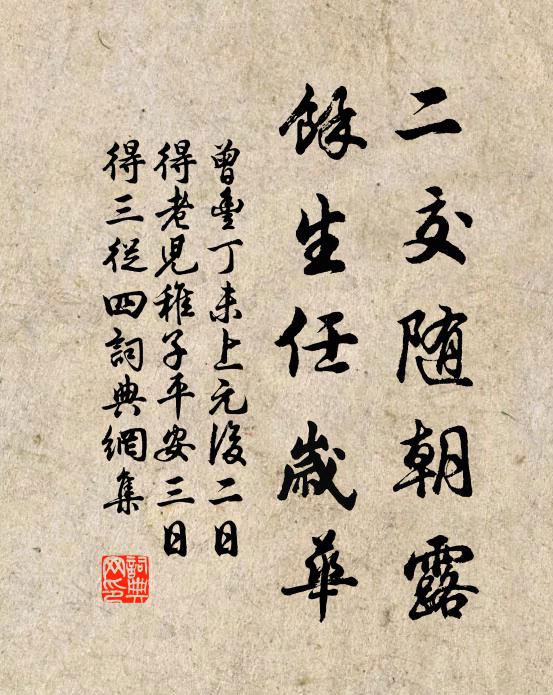 二交随朝露
餘生任歲華
曾豊丁未上元後二日
得老兒稚子平安三日
得三從四詞典網集
詞典网印